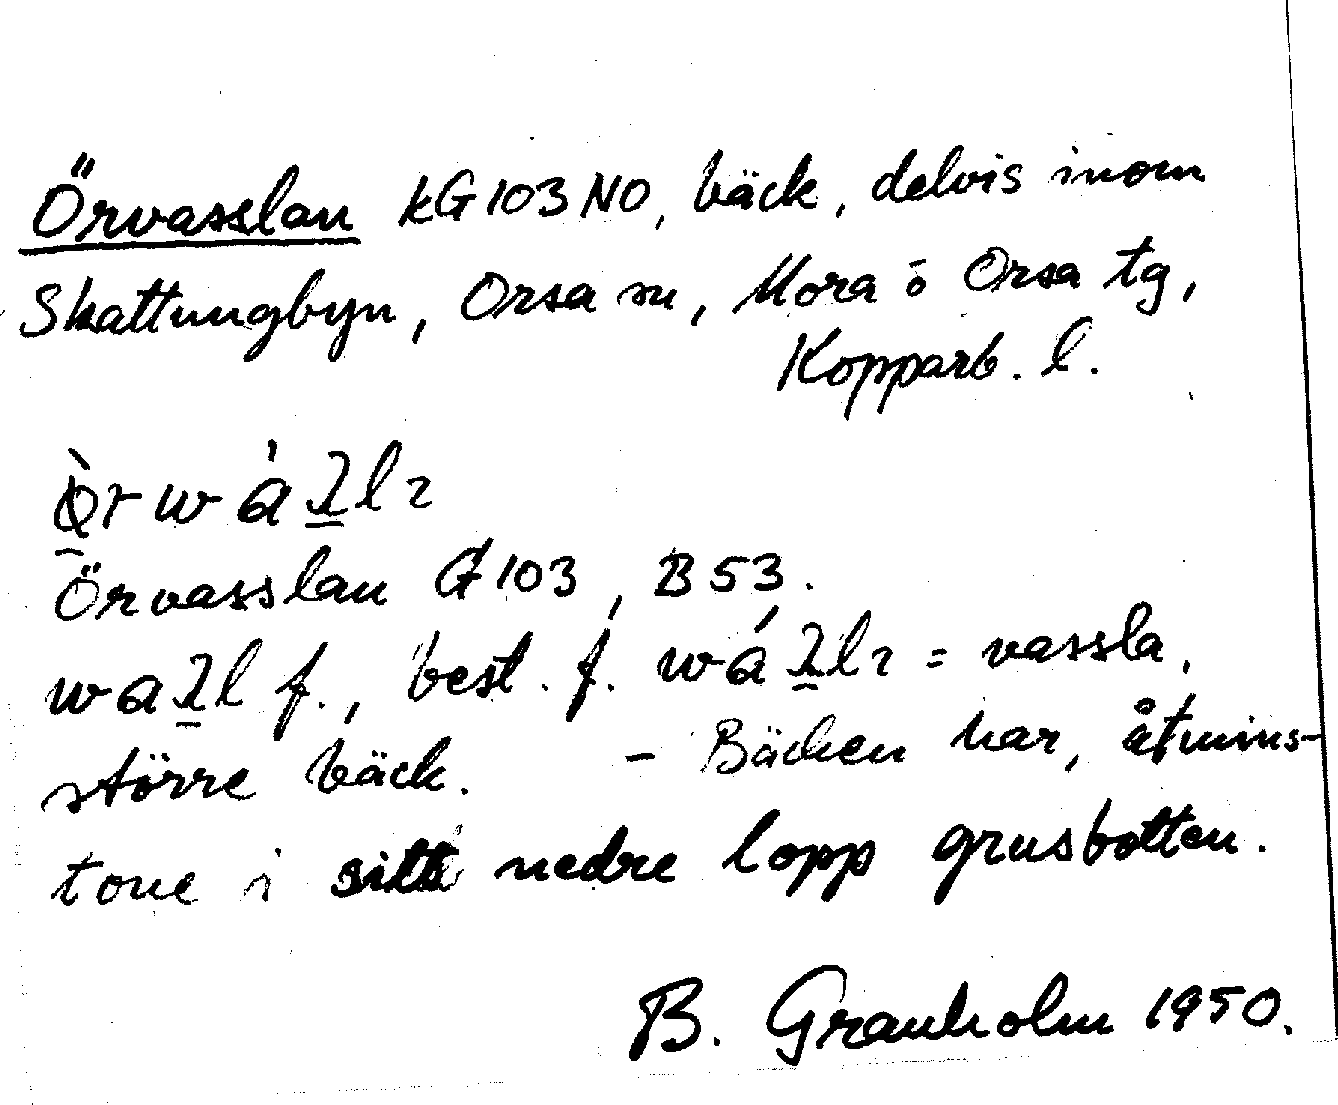 Örvasslan kG103NO, bäck, delvis inom
Skattungbyn, Orsa sn, Mora o Orsa tg,
Kopparb. l.
Örvasslan G103, B53.
f., best. f. = vassla,
större bäck. - Bäcken har, åtmins-
tone i sitt nedre lopp grusbotten.
B. Granholm 1950.